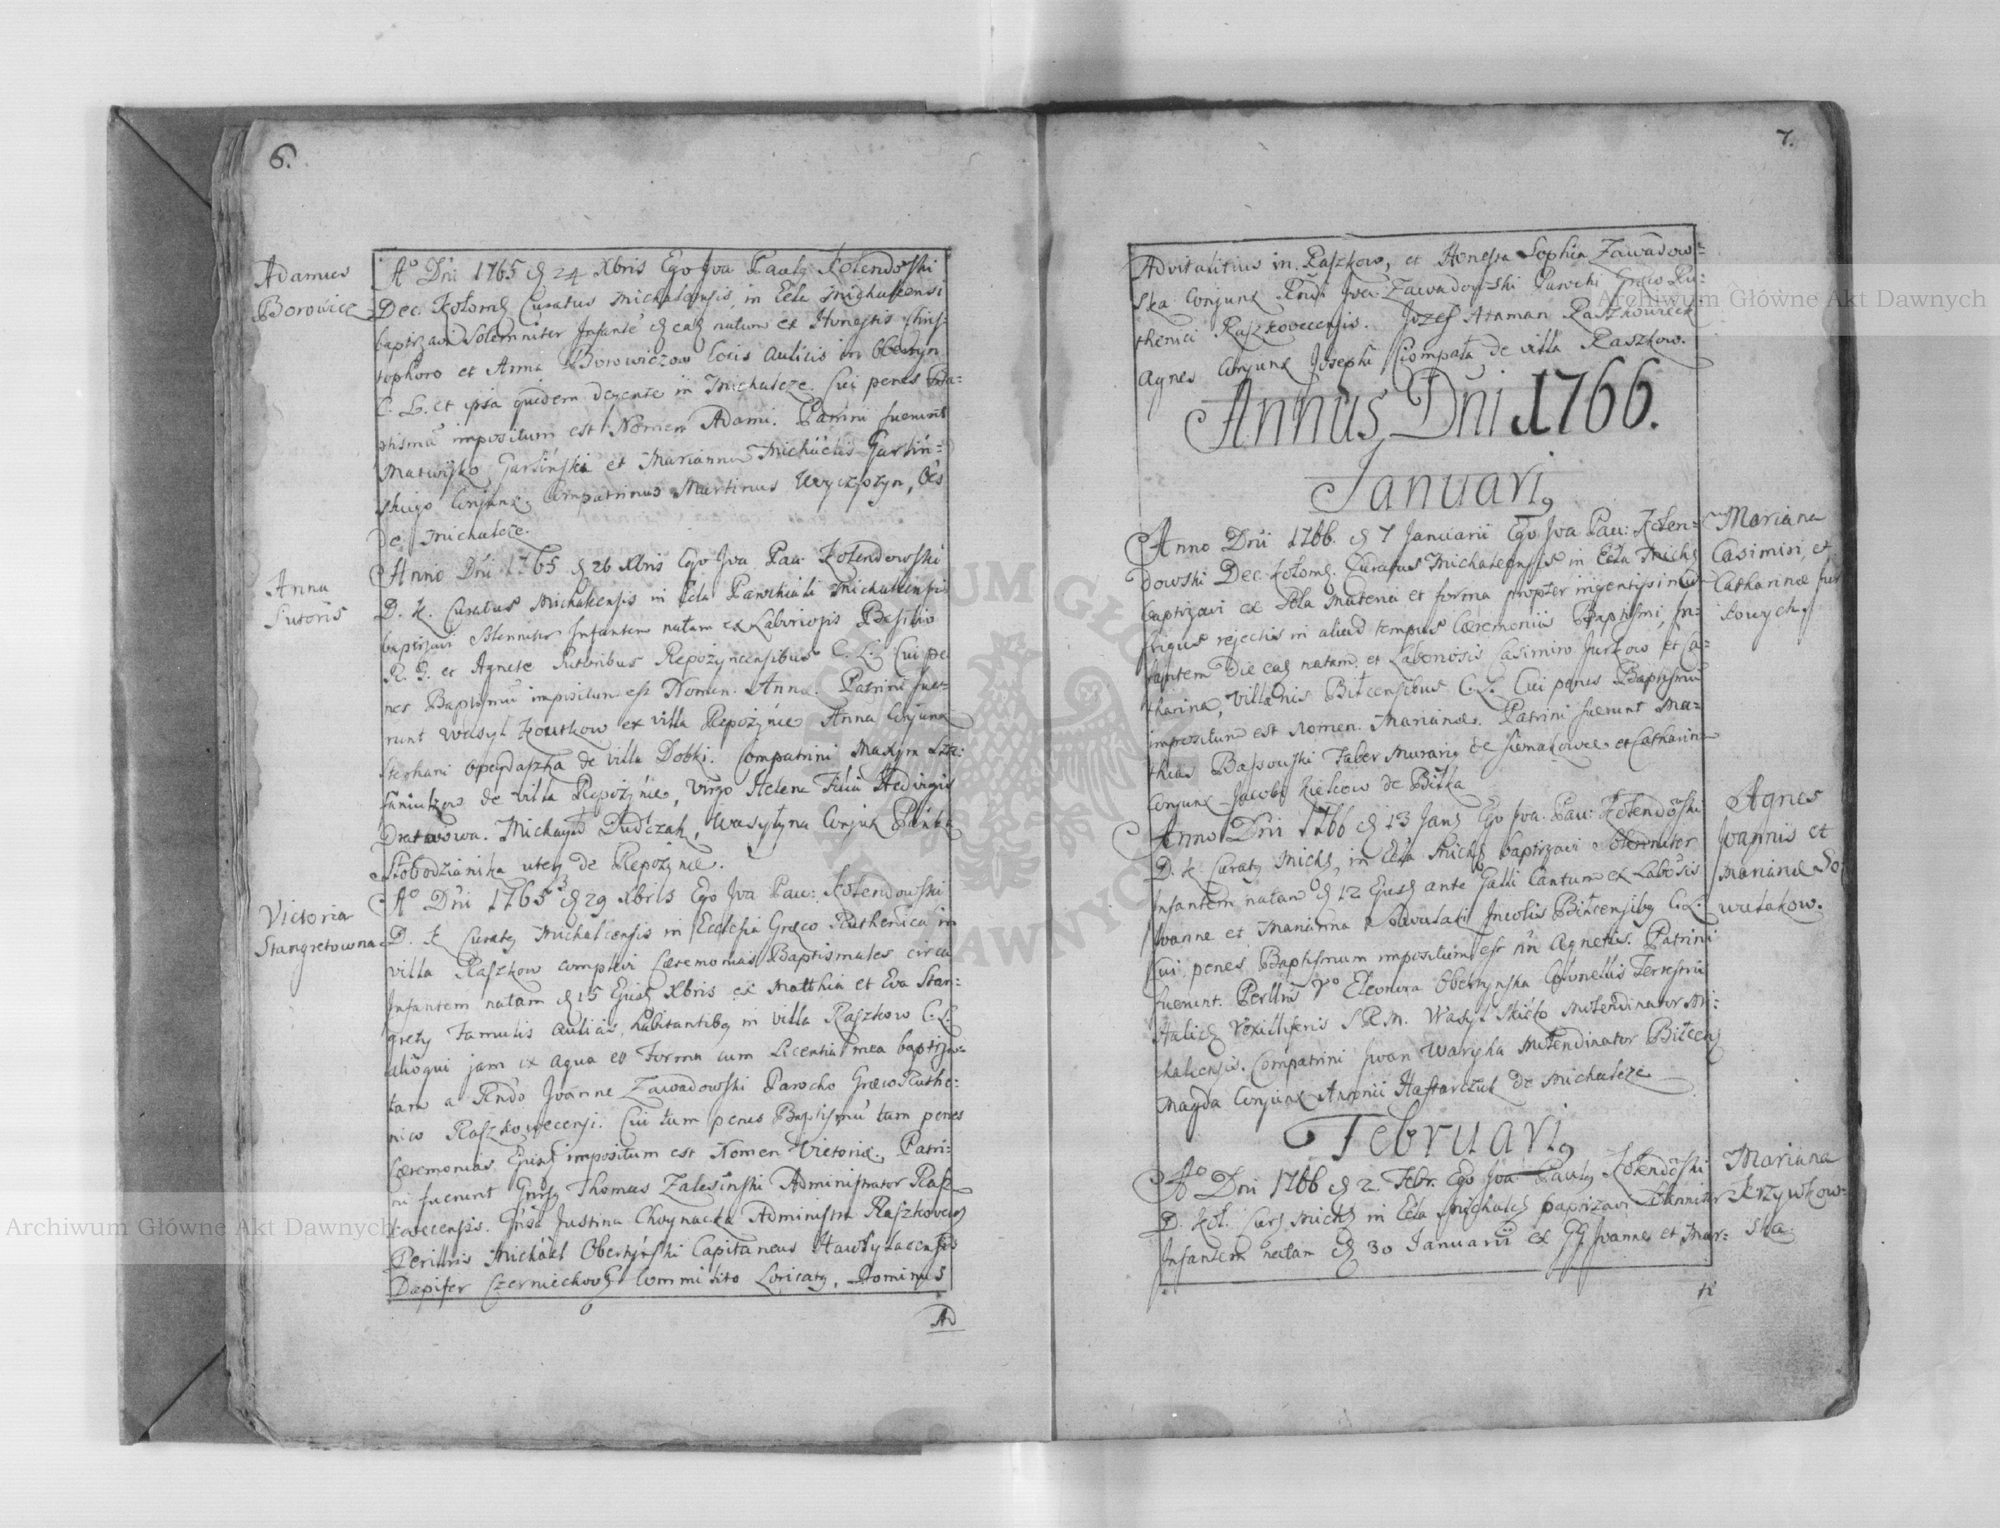 6.
Adamus
Borowicz
A⁰ Dni 1765 d 24 Xbris Ego Joa Paulg Kołendowski
Dec. Kołom Curatus Michalcensis, in Ecla Michalcensi
baptizavi Solemniter Infante d ead natum ex Honestis Chris-
tophoro et Anna Borowiczow locis aulicis in Obertyn
C. L. et ipsa quidem degente in Michalcze. Cui penes Ba-
ptismã impositum est Nomen Adami. Patrini fuerunt
Matwiyko Garlinski et Marianna Michaelis Garlin-
skiego Conjunx Compatrinus Martinus
de Michalcze.
Anna
Sutoris
Anno Dni 1765 d 26 Xbris Ego Joa Pau: Kołendowski
D. K. Curatus Michalcensis in Ecla Parochiali Michalcensi
baptizavi Solemniter Infantem natam ex Laboriosis Basilio
R. G. et Agnete Sutoribus Repozyncensibus C. L. Cui pe-
nes Baptismũ impositum est Nomen Anna. Patrini fue-
runt Wasyl Kowtkow ex villa Repożynie Anna Conjunx
Stephani de villa Dobki. Compatrini Maxym Ste-
faniukow de villa Repożynie, Virgo Helena Filia Hedvigis
Dratwowa. Michayło Dudczak, Wasylyna Conjux
Słobodzianika uterq de Repożynie.
Victoria
Stangretowna
A⁰ Dni 1765 d 29 Xbris Ego Joa Pau: Kołendowski
D. K Curatg Michalcensis in Ecclesia Græco Ruthenica in
villa Raszkow complevi Cæremonias Baptismales circa
Infantem natam d 15 Ejusd Xbris ex Matthia et Eva Stan-
grety Famulis aulicis, habitantibg in villa Raszkow C. L.
alioqui jam ex aqua et Forma cum Licentia mea baptiza-
tam a Rndo Joanne Zawadowski Parocho Græco Ruthe-
nico Raszkowecensi. Cui tum penes Baptismũ tum penes
Cæremonias Ejusd impositum est Nomen Victoriæ. Patri-
ni fuerunt Gnrsg Thomas Zalesinski Administrator Rasz-
kowecensis. Gnsa Justina Choynacka Administra Raszkovecens
Perillris Michael Obertynski Capitaneus Hawrylacensis
Dapifer Czerniechov Commilito Loricatg, Dominus
Ad
7.
Advitalitius in Raszkow, et Honesta Sophia Zawadow-
ska Conjunx Rndi Joa: Zawadowski Parochi Græco Ru-
thenici Raszkovecensis. Jozef Ataman Raszkowieck
Agnes Conjunx Josephi Ciompała de villa Raszkow.
Annus Dni 1766.
Januarig
Mariana
Casimiri, et
Catharinæ Jur
kowych.
Anno Dni 1766. d 7 Januarii Ego Joa Pau: Kołen-
dowski Dec. Kołom. Curatus Michalcensis in Ecla Mich
baptizavi ex sola Materia et forma propter ingentissimũ
frigus rejectis in aliud tempus Cæremoniis Baptismi, In-
fantem Die ead natam et Laboriosis Casimiro Jurkow et Ca-
tharina, villanis Bitcensibus C. L. Cui penes Baptismũ
impositum est Nomen Marianæ. Patrini fuerunt Ma-
thias Bassowski Faber Murarig de Siemakowce et Catharina
Conjunx Jacobi Kielcow de Bitka
Agnes
Joannis et
Mariannæ So
wulakow.
Anno Dni 1766 d 13 Jan Ego Joa. Pau: Kołendowski
D. K. Curatg Mich, in Ecla Mich baptizavi Solemniter
Infantem natam d 12 Ejusd ante Galli Cantum ex Labosis
Joanne et Marianna Sowulaki Incolis Bitcensibg C. L.
Cui penes Baptismum impositum est nn Agnetis. Patrini
fuerunt. Perllris Vo Eleonora Obertynska Colonellis Terrestris
Halicz Vexilliferis S.R.M. Wasyl Molendinator Mi-
chalcensis. Compatrini Iwan Waryha Molendinator Bitcen
Magda Conjunx Antonii Haftarczuk de Michalcze
Februarig
Mariana
Krzywkow-
ska.
A⁰ Dni 1766 d 2. Febr. Ego Joa Paulg Kołendowski
D. Koł. Cur Mich in Ecla Michalc baptizavi Solemniter
Infantem natam d 30 Januarii ex GG Joanne et Mar-
Archiwum Główne Akt Dawnych
Archiwum Główne Akt Dawnych
ARCHIWUM GŁÓWNE AKT DAWNYCH